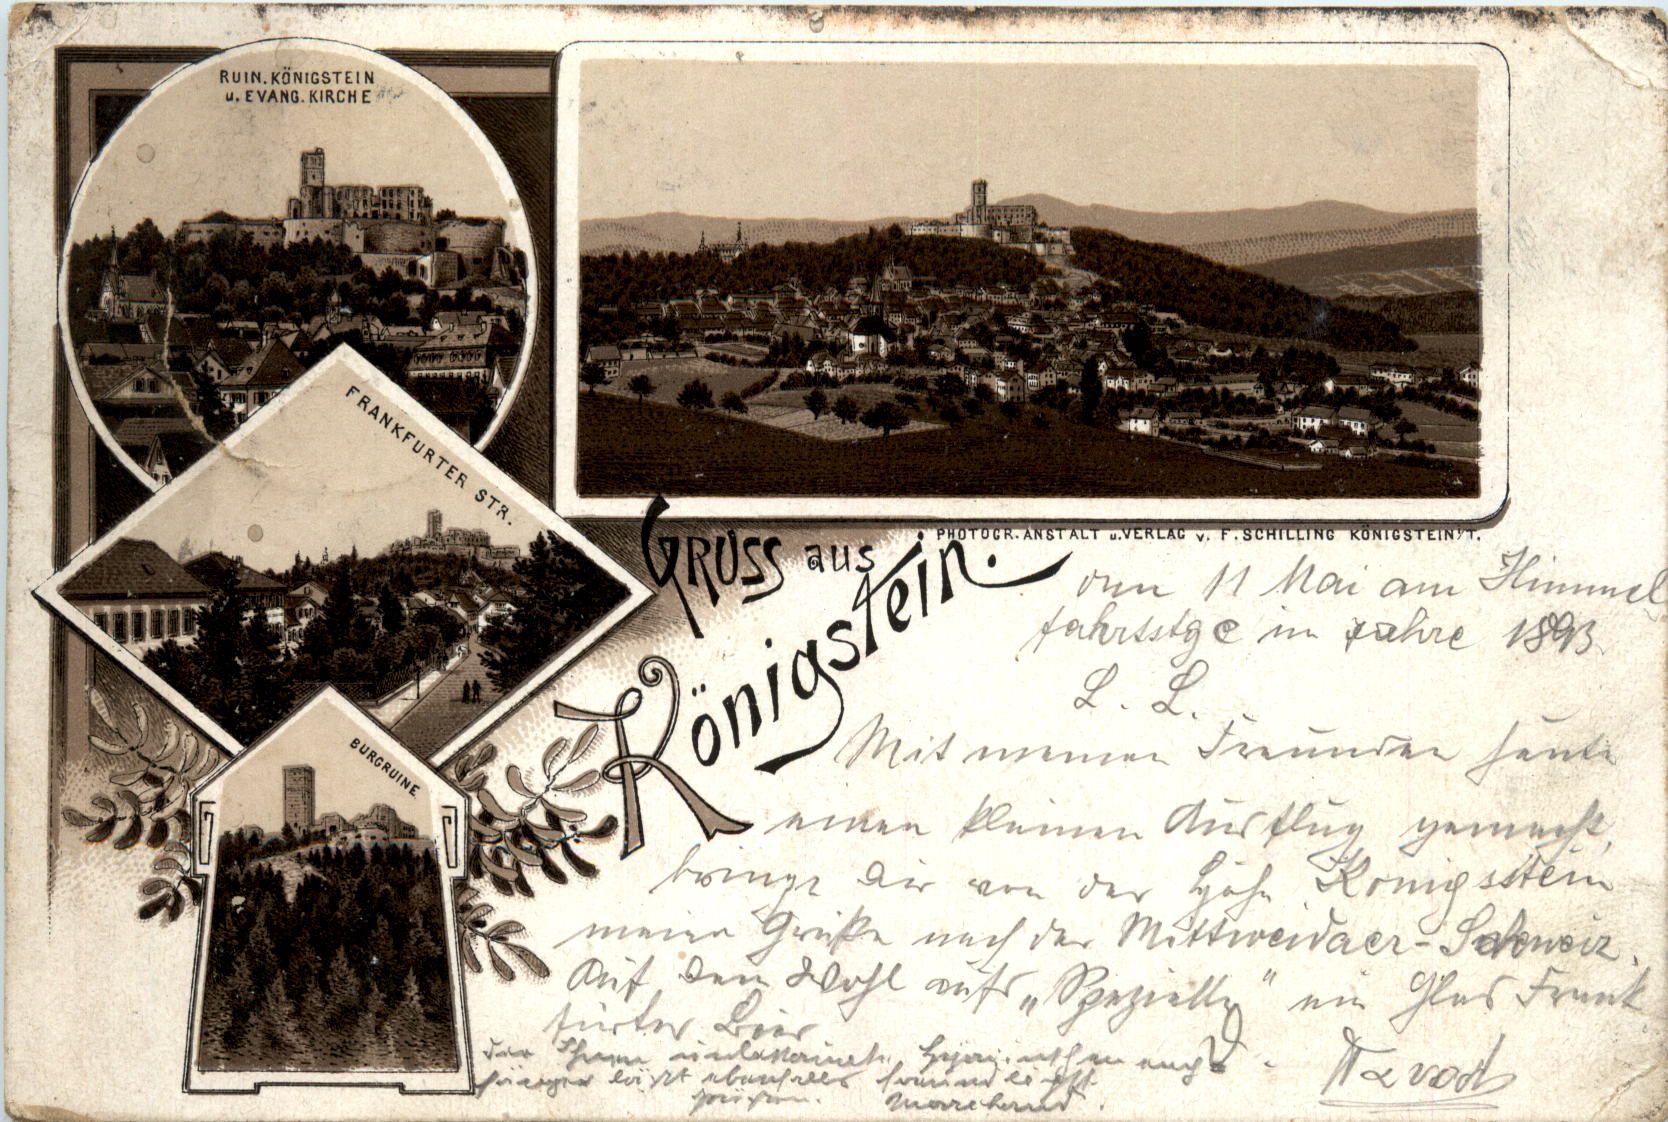 RUIN. KÖNIGSTEIN
u. EVANG. KIRCHE
FRANKFURTER STR.
BURGRUINE.
PHOTOGR. ANSTALT u. VERLAG v. F. SCHILLING KÖNIGSTEIN i/T.
GRUSS aus
Königstein.
den 11 Mai am Himmel
fahrtstge im Jahre 1893
L. L.
Mit meinen Freunden heute
einen kleinen Ausflug gemacht,
bringe Dir von der Höhe Königsstein
meine Grüße nach der Mittweidaer-Schweiz.
Auf Dein Wohl aufs „Spezielle" ein Glas Frank
furter Bier
der
läßt ebenfalls
grüßen.